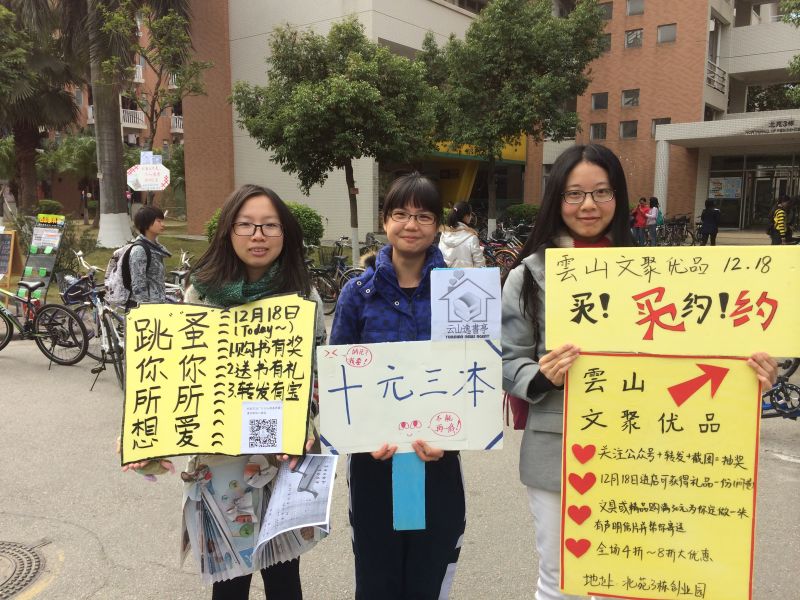 跳你所想
蚤你所爱
12月18日
(Today~)
1.购书有奖
2.送书有礼
3.转发有宝
云山逸書亭
十元三本
雲山文聚优品 12.18
买！买约！约
雲山
文聚优品
关注公众号+转发+截图=抽奖
12月18日进店可获得礼品一份
文具或精品购满30元为你定做一张
有声明信片并帮你寄送
全场4折~8折大优惠
地址：北苑3栋创业园
北苑3栋